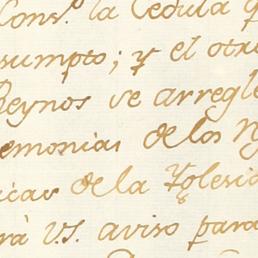 Cons.º la Cedula q
sumpto; y el otro
Reynos se arregle
emonias de los
icas de la Yglesia
rà V.S. aviso para